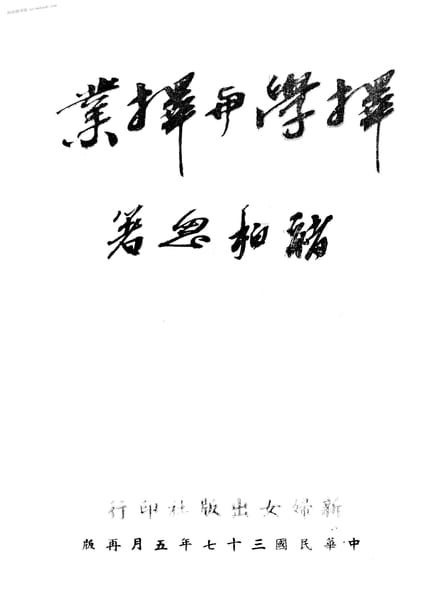 擇學與擇業
褚柏思著
新婦女出版社印行
中華民國三十七年五月再版